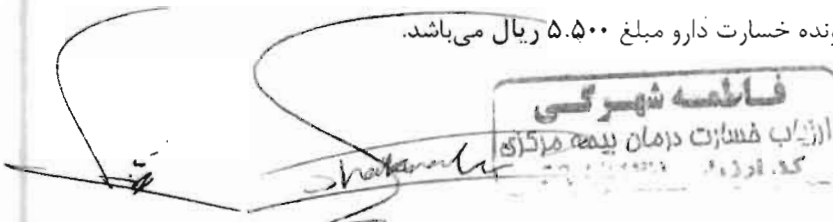 ونده خسارت دارو مبلغ ۵.۵۰۰ ریال می‌باشد.
فاطمه شهرکی
ارزیاب خسارت درمان بیمه مرکزی
کد ارزیاب